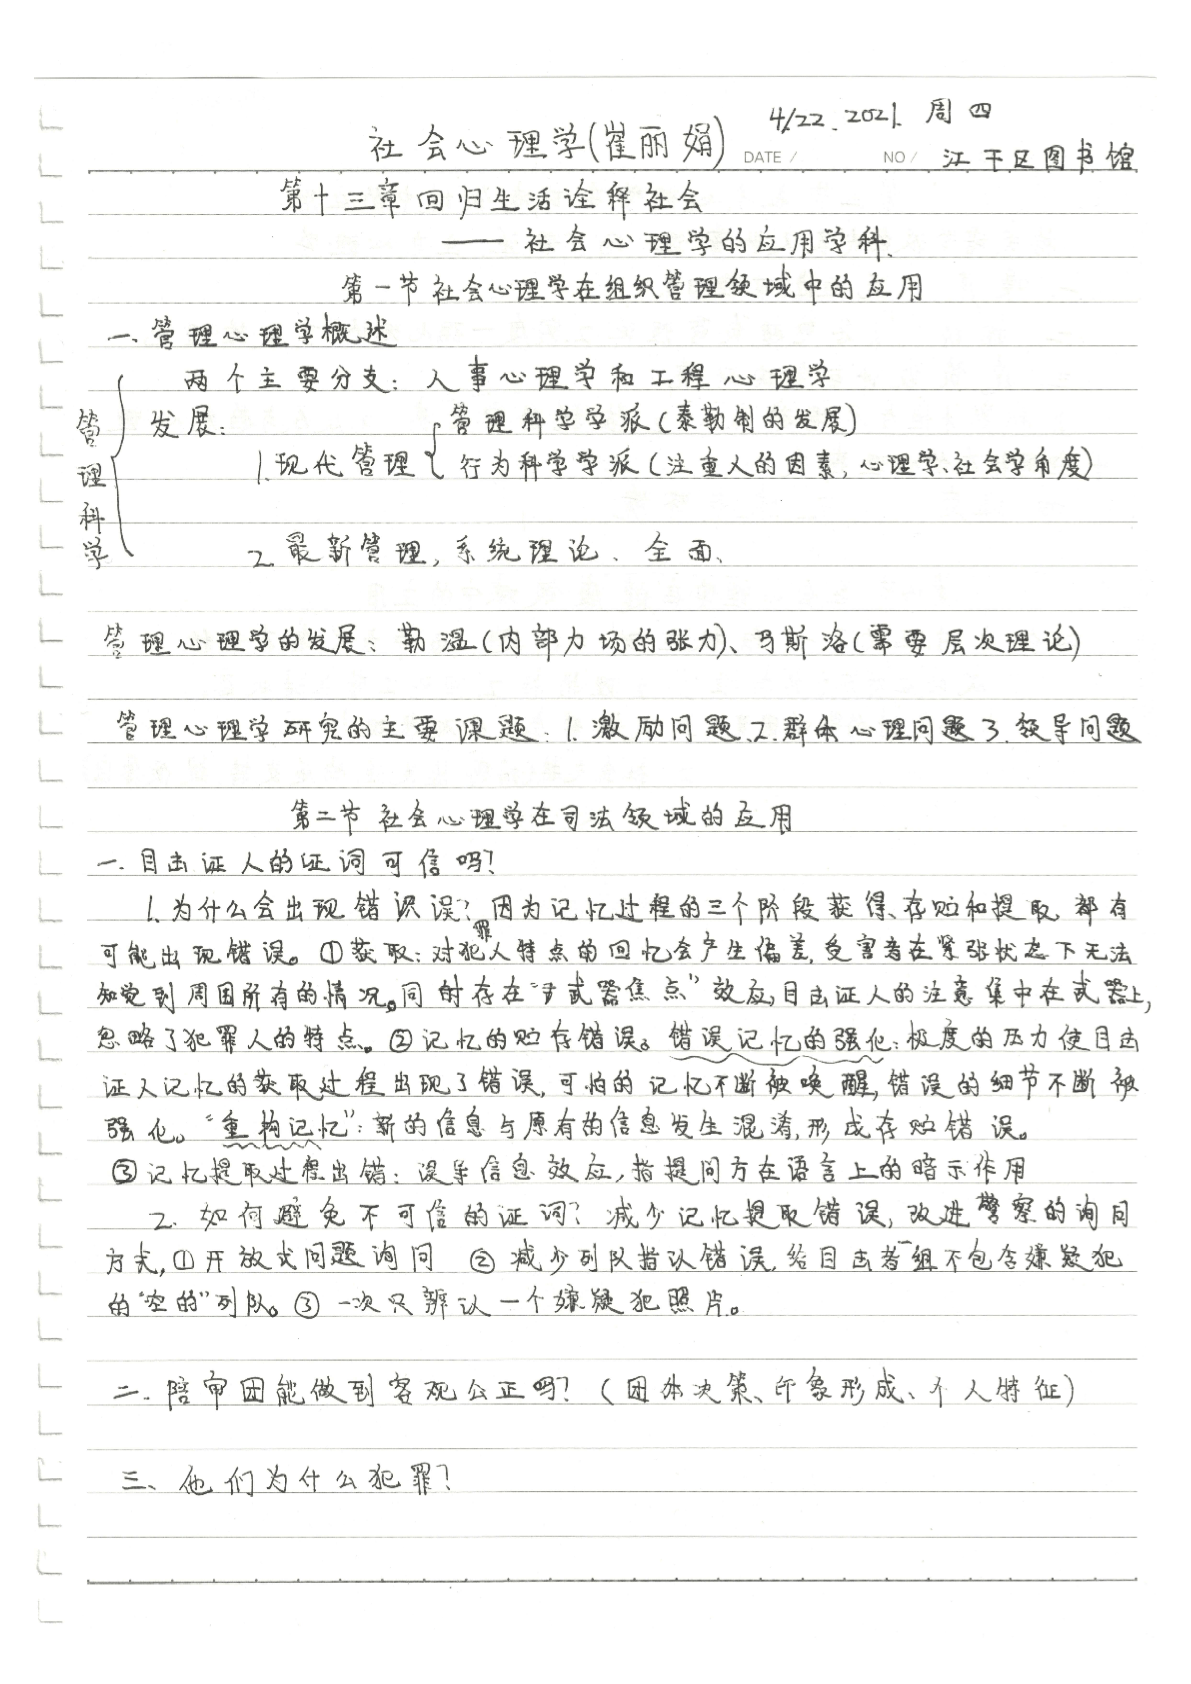 4/22.2021. 周四
社会心理学(崔丽娟)
DATE / NO / 江干区图书馆
第十三章回归生活诠释社会
——社会心理学的应用学科.
第一节社会心理学在组织管理领域中的应用
一.管理心理学概述
两个主要分支：人事心理学和工程心理学
管理科学
发展：
管理科学学派(泰勒制的发展)
1.现代管理
行为科学学派(注重人的因素,心理学、社会学角度)
2.最新管理,系统理论、全面、
管理心理学的发展：勒温(内部力场的张力)、马斯洛(需要层次理论)
管理心理学研究的主要课题：1.激励问题、2.群体心理问题3.领导问题
第二节社会心理学在司法领域的应用
一.目击证人的证词可信吗?
1.为什么会出现错识误?因为记忆过程的三个阶段获得、存贮和提取,都有
可能出现错误。①获取：对犯罪人特点的回忆会产生偏差,受害者在紧张状态下无法
知觉到周围所有的情况。同时存在“武器焦点”效应,目击证人的注意集中在武器上,
忽略了犯罪人的特点。②记忆的贮存错误。错误记忆的强化：极度的压力使目击
证人记忆的获取过程出现了错误,可怕的记忆不断被唤醒,错误的细节不断被
强化。“重构记忆”：新的信息与原有的信息发生混淆,形成存贮错误。
③记忆提取过程出错：误导信息效应,指提问方在语言上的暗示作用
2.如何避免不可信的证词?减少记忆提取错误,改进警察的询问
方式,①开放式问题询问 ②减少列队指认错误,给目击者一组不包含嫌疑犯
的“空的”列队。③一次只辨认一个嫌疑犯照片。
二.陪审团能做到客观公正吗?(团体决策、印象形成、个人特征)
三、他们为什么犯罪?